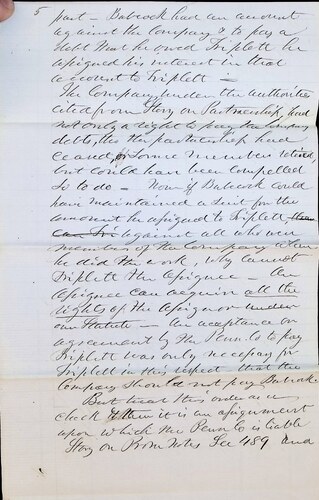 5 part – Babcock had an account
against the Company & to pay a
debt that he owed Triplett he
assigned his interest in that
account to Triplett –
The Company under the authorities
cited from Story on Partnership had
not only a right to pay the Company
debts, tho the partnership had
ceased, or some members retired,
but could have been compelled
so to do – Now if Babcock could
have maintained a suit for the
amount he assigned to Triplett,
against all who were
members of the Company when
he did the work, why cannot
Triplett the assignee – An
assignee can acquire all the
rights of the assignor under
our Statute – An acceptance or
agreement by the Penn. Co to pay
Triplett was only necessary for
Triplett in this respect that the
Company should not pay Babcock.
But treat this order as a
check then it is an assignment
upon which the Penn Co is liable
Story on Prom Notes Sec 489 and